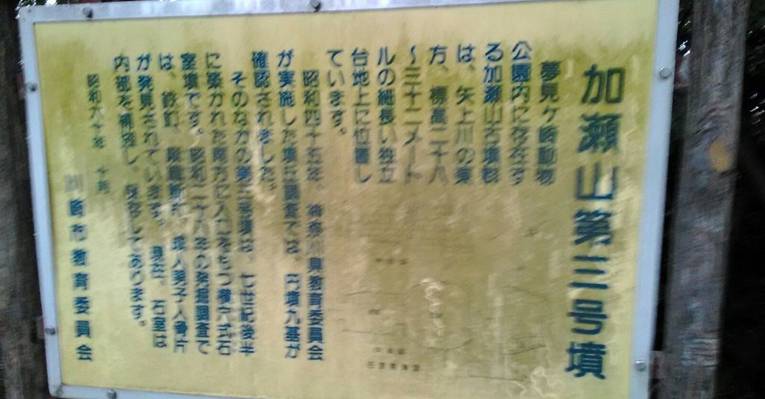 加瀬山第三号墳
夢見ヶ崎動物
公園内に存在す
る加瀬山古墳群
は、矢上川の東
方、標高二十八
〜三十二メート
ルの細長い独立
台地上に位置し
ています。
昭和四十五年、神奈川県教育委員会
が実施した墳丘調査では、円墳九基が
確認されました。
そのなかの第三号墳は、七世紀後半
に築かれた南方に入口をもつ横穴式石
室墳です。昭和二十八年の発掘調査で
は、鉄釘、成人男子人骨片
が発見されています。現在、石室は
内部を補強し、保存してあります。
昭和六十年
川崎市教育委員会